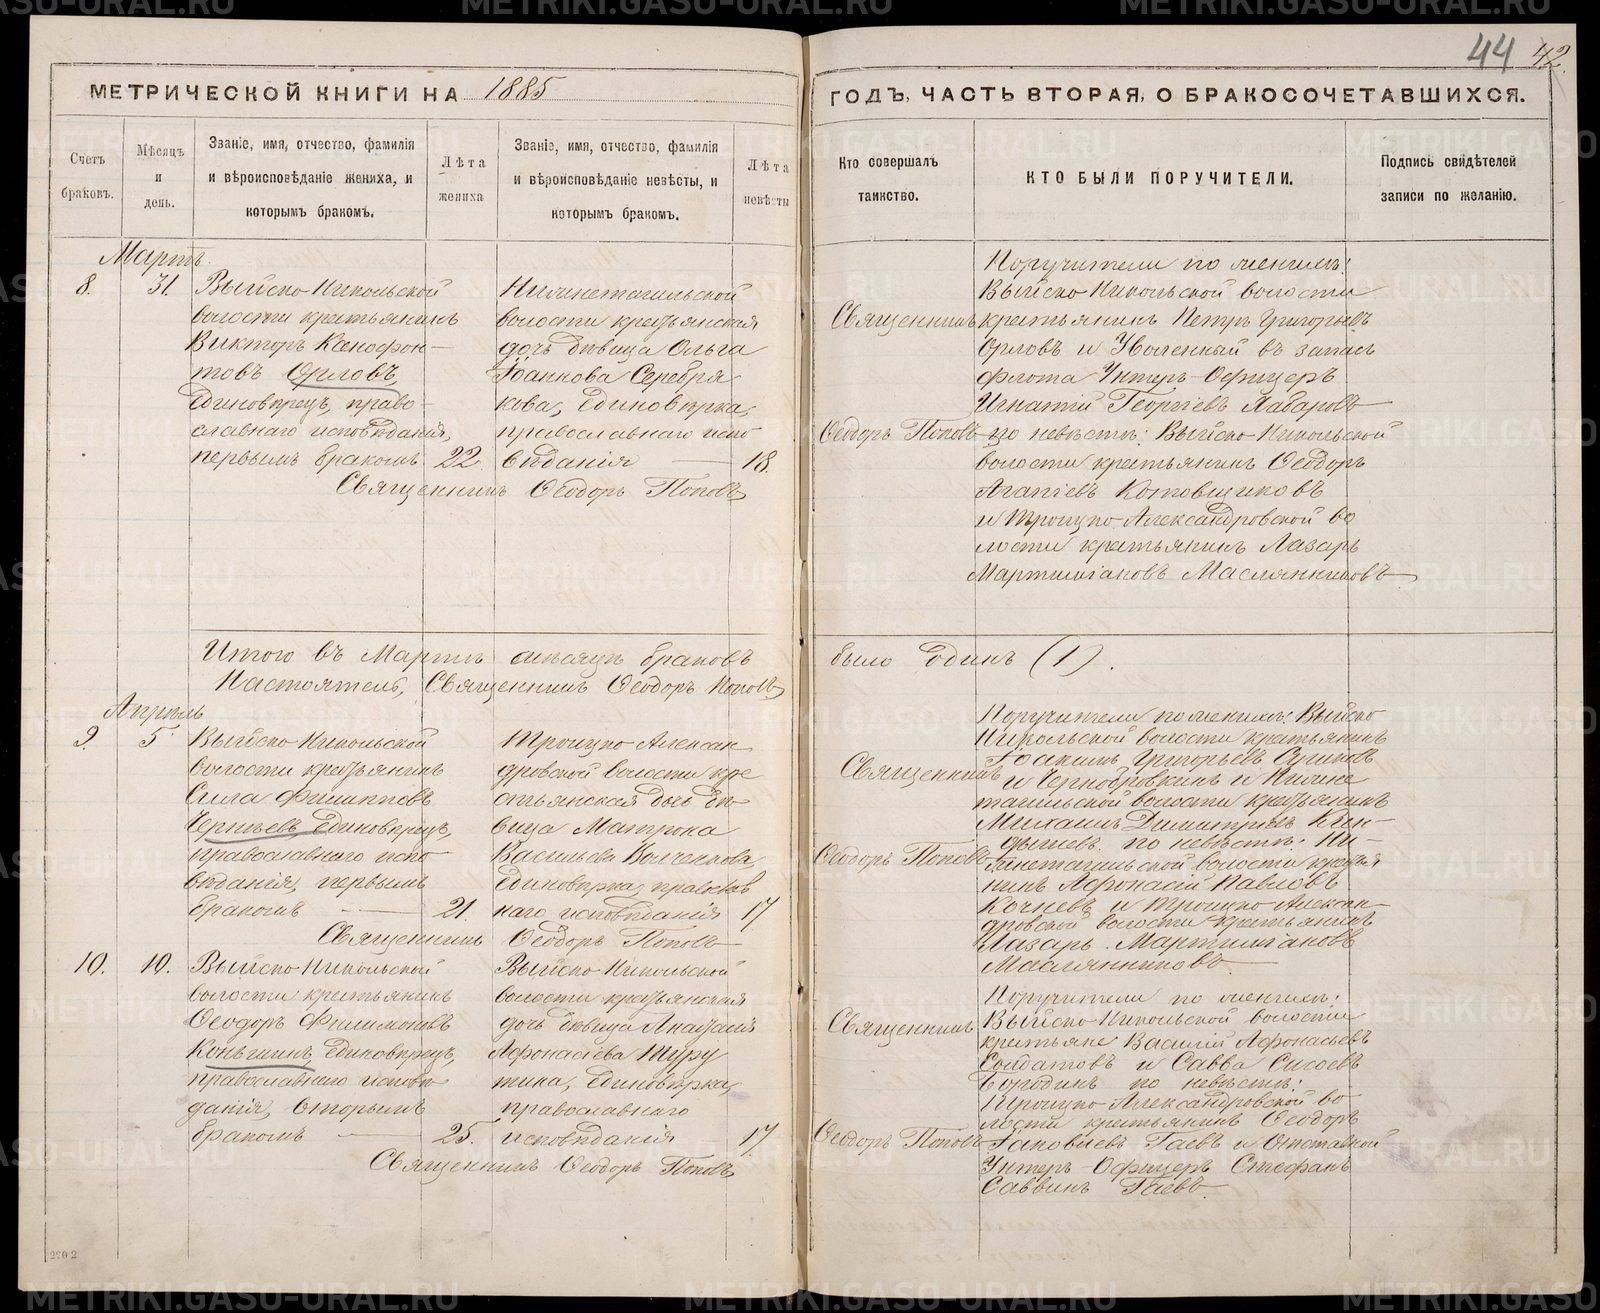 44 42.
МЕТРИЧЕСКОЙ КНИГИ НА 1885
ГОДЪ, ЧАСТЬ ВТОРАЯ, О БРАКОСОЧЕТАВШИХСЯ.
Счетъ
браковъ.
Мѣсяцъ
и
день.
Званіе, имя, отчество, фамилія
и вѣроисповѣданіе жениха, и
которымъ бракомъ.
Лѣта
жениха
Званіе, имя, отчество, фамилія
и вѣроисповѣданіе невѣсты, и
которымъ бракомъ.
Лѣта
невѣсты
Кто совершалъ
таинство.
КТО БЫЛИ ПОРУЧИТЕЛИ.
Подпись свидѣтелей
записи по желанію.
Мартъ.
8.
31.
Выйско Никольской
волости крестьянинъ
Викторъ Ксенофон-
товъ Орловъ,
единовѣрецъ, право-
славнаго исповѣданія,
первымъ бракомъ
22.
Нижнетагильской
волости крестьянская
дочь дѣвица Ольга
Іоаннова Серебря-
кова, единовѣрка,
православнаго испо-
вѣданія
18.
Священникъ Ѳеодоръ Поповъ
Священникъ
Ѳеодоръ Поповъ
Поручители по женихѣ:
Выйско Никольской волости
крестьянинъ Петръ Григорьевъ
Орловъ и Уволенный въ запасъ
флота Унтеръ-Офицеръ
Игнатій Георгіевъ Хабаровъ
по невѣстѣ: Выйско-Никольской
волости крестьянинъ Ѳеодоръ
Агапіевъ Котовщиковъ
и Троицко Александровской во
лости крестьянинъ Лазарь
Мартиніановъ Маслянниковъ
Итого въ Мартѣ мѣсяцѣ браковъ
было одинъ (1).
Настоятель, Священникъ Ѳеодоръ Поповъ
Апрѣль
9.
5
Выйско Никольской
волости крестьянинъ
Сила Филипповъ
Черняевъ единовѣрецъ,
православнаго испо-
вѣданія, первымъ
бракомъ
21.
Троицко Алексан
дровской волости кре
стьянская дочь дѣ-
вица Матрона
Васильева
единовѣрка, православ
наго исповѣданія
17
Священникъ Ѳеодоръ Поповъ
Священникъ
Ѳеодоръ Поповъ
Поручители по женихѣ: Выйско
Никольской волости крестьянинъ
Іоакимъ Григорьевъ
и Чернобровкинъ и Нижне
тагильской волости крестьянинъ
Михаилъ Димитріевъ
по невѣстѣ: Ни-
жнетагильской волости крестья
нинъ Афонасій Павловъ
Кочневъ и Троицко Алексан-
дровской волости крестьянинъ
Лазарь Мартиніановъ
Маслянниковъ
10.
10.
Выйско Никольской
волости крестьянинъ
Ѳеодоръ Филимоновъ
Коньшинъ, единовѣрецъ,
православнаго исповѣ-
данія, вторымъ
бракомъ
25.
Выйско-Никольской
волости крестьянская
дочь дѣвица Анастасія
Афонасіева Туру
тина, единовѣрка,
православнаго
исповѣданія
17.
Священникъ Ѳеодоръ Поповъ
Священникъ
Ѳеодоръ Поповъ
Поручители по женихѣ:
Выйско-Никольской волости
крестьяне Василій Афонасьевъ
Солдатовъ и Савва Сысоевъ
Бородинъ по невѣстѣ:
Троицко Александровской во-
лости крестьянинъ Ѳеодоръ
Іаковлевъ Гаевъ и Отставной
Унтеръ-Офицеръ Стефанъ
Саввинъ Гаевъ.
2202
METRIKI.GASO-URAL.RU